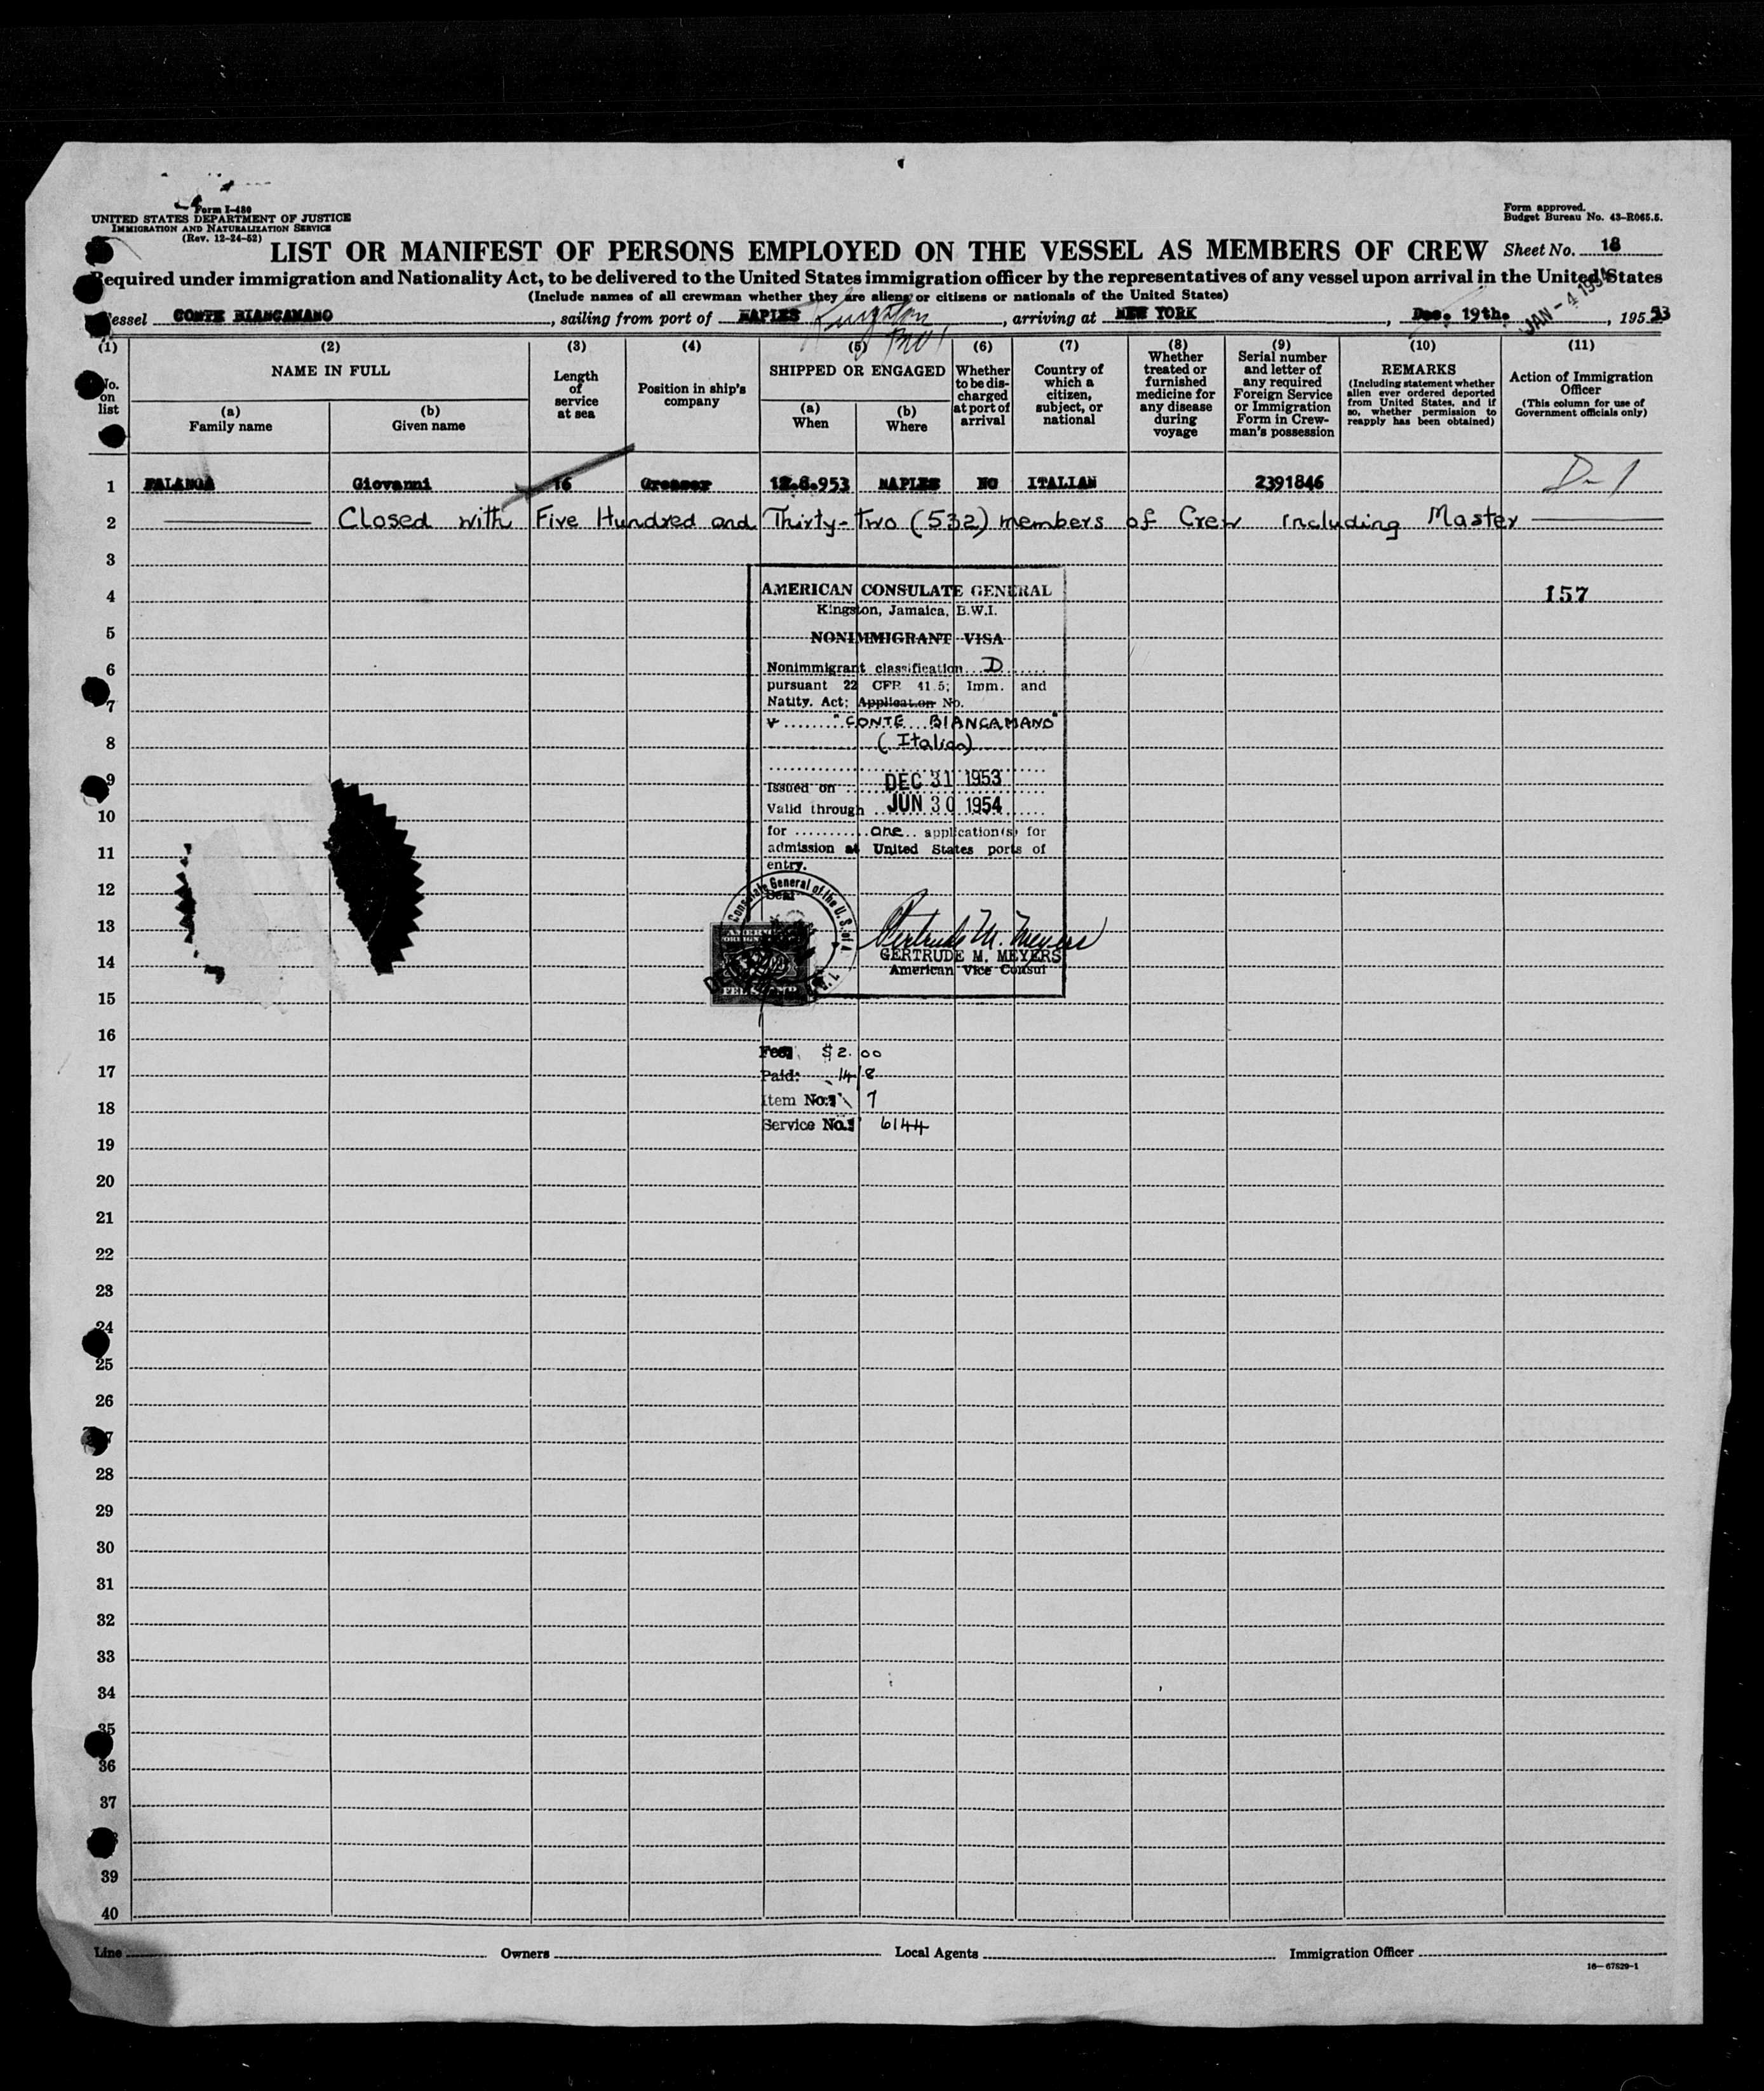 Form I-480
UNITED STATES DEPARTMENT OF JUSTICE
IMMIGRATION AND NATURALIZATION SERVICE
(Rev. 12-24-52)
Form approved.
Budget Bureau No. 43-R065.5.
LIST OR MANIFEST OF PERSONS EMPLOYED ON THE VESSEL AS MEMBERS OF CREW
Sheet No. 18
Required under immigration and Nationality Act, to be delivered to the United States immigration officer by the representatives of any vessel upon arrival in the United States
(Include names of all crewman whether they are aliens or citizens or nationals of the United States)
Vessel CONTE BIANCAMANO, sailing from port of NAPLES Kingston, arriving at NEW YORK, Dec. 19th. JAN - 4 195, 1953
(1) No. on list
(2) NAME IN FULL
(a) Family name
(b) Given name
(3) Length of service at sea
(4) Position in ship's company
(5) SHIPPED OR ENGAGED
(a) When
(b) Where
(6) Whether to be discharged at port of arrival
(7) Country of which a citizen, subject, or national
(8) Whether treated or furnished medicine for any disease during voyage
(9) Serial number and letter of any required Foreign Service or Immigration Form in Crewman's possession
(10) REMARKS (Including statement whether alien ever ordered deported from United States, and if so, whether permission to reapply has been obtained)
(11) Action of Immigration Officer (This column for use of Government officials only)
1 FALANGA Giovanni 16 Greaser 12.8.953 NAPLES NO ITALIAN 2391846 D-1
2 Closed with Five Hundred and Thirty-Two (532) members of Crew including Master
3
4 157
5
6
7
8
9
10
11
12
13
14
15
16
17
18
19
20
21
22
23
24
25
26
28
29
30
31
32
33
34
35
36
37
39
40
AMERICAN CONSULATE GENERAL
Kingston, Jamaica, B.W.I.
NONIMMIGRANT VISA
Nonimmigrant classification D
pursuant 22 CFR 41.5; Imm. and
Natity. Act; Application No.
v "CONTE BIANCAMANO"
(Italian)
Issued on DEC 31 1953
Valid through JUN 30 1954
for one application(s) for
admission at United States ports of
entry.
Seal
Consulate General of the U.S. of A
Gertrude M. Meyers
GERTRUDE M. MEYERS
American Vice Consul
Fee: $2.00
Paid: 14/8
Item No. 7
Service No. 6144
Line
Owners
Local Agents
Immigration Officer
16-67529-1